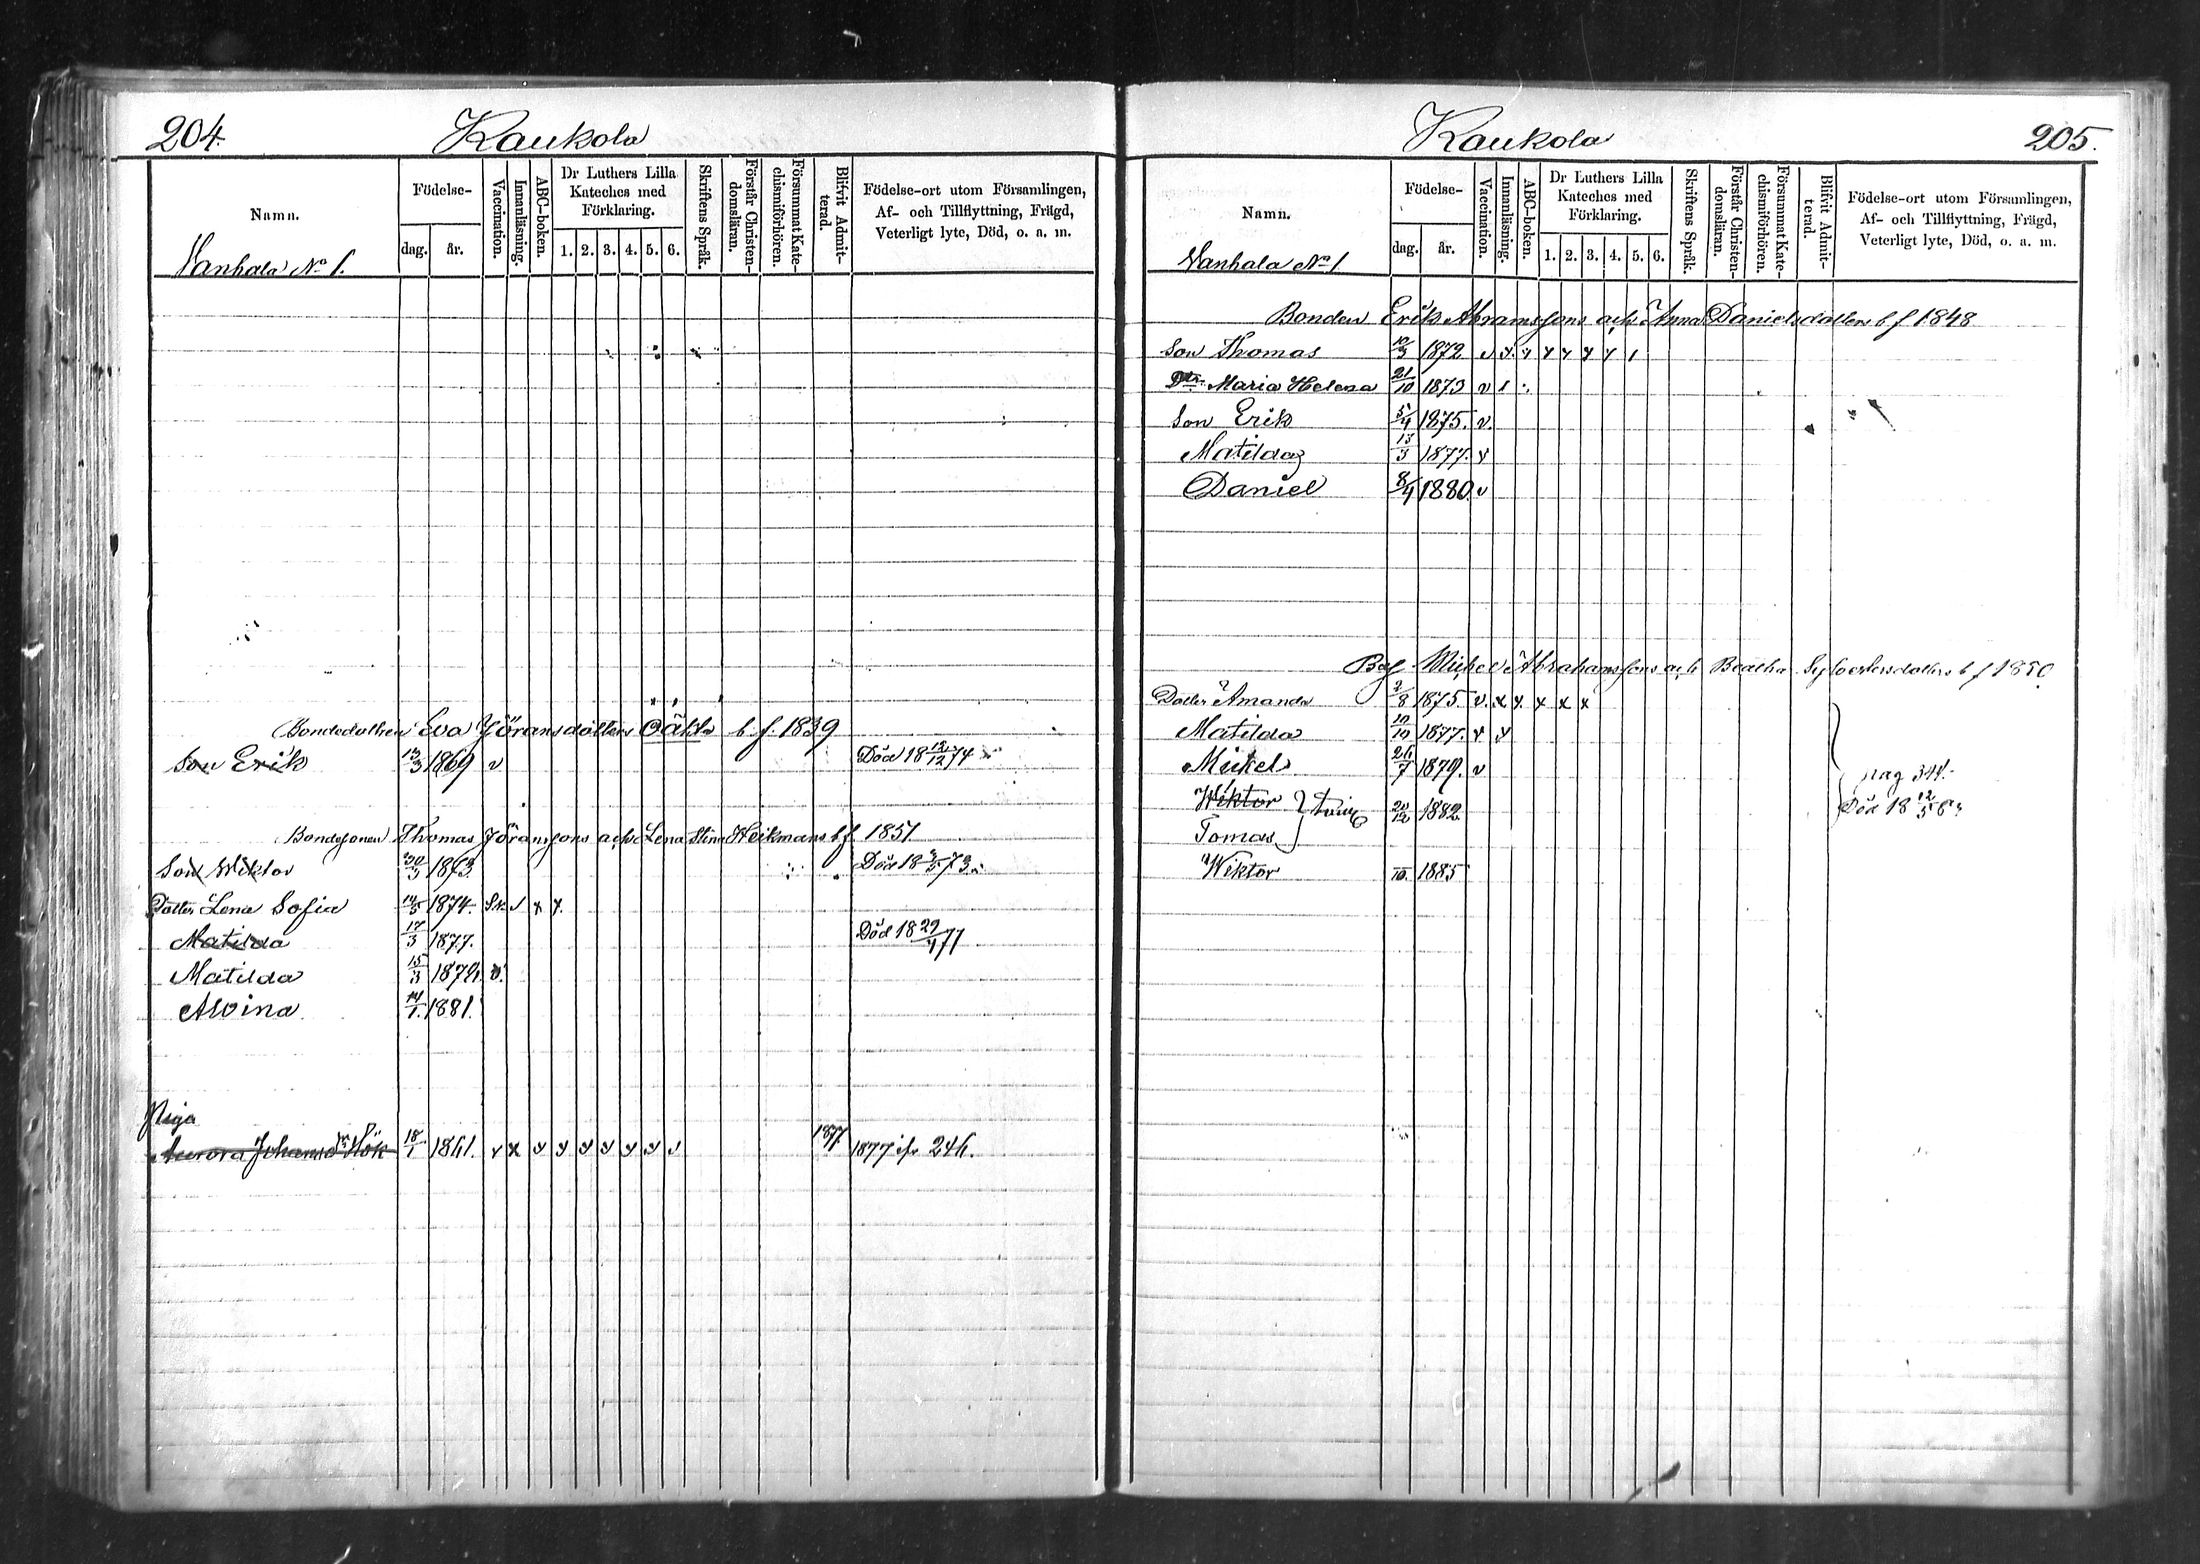 204.
Kaukola
Namn.
Födelse-
dag.
år.
Vaccination.
Innanläsning.
ABC-boken.
Dr Luthers Lilla
Kateches med
Förklaring.
1. 2. 3. 4. 5. 6.
Skriftens Språk.
Förstår Christen-
domsläran.
Försummat Kate-
chismiförhören.
Blifvit Admit-
terad.
Födelse-ort utom Församlingen,
Af- och Tillflyttning, Frägd,
Veterligt lyte, Död, o. a. m.
Vanhala No 1.
Bondedottren Eva Jöransdotters oäkta b. f. 1839
Son Erik 13/3 1869 v Död 18 12/12 74
Bondesonen Thomas Jöranssons och Lena Stina Heikmans b f. 1851
Son Wiktor 30/3 1873 Död 18 /5 73
Dotter Lena Sofia 14/5 1874. v x x
Matilda 17/3 1877. Död 18 29/4 77
Matilda 15/3 1879. v.
Alvina 14/1. 1881.
Piga
Aurora Johansdr Hök 18/1 1861. v x v v v v v v v 1877. 1877 ifr 246.
205.
Kaukola
Namn.
Födelse-
dag.
år.
Vaccination.
Innanläsning.
ABC-boken.
Dr Luthers Lilla
Kateches med
Förklaring.
1. 2. 3. 4. 5. 6.
Skriftens Språk.
Förstår Christen-
domsläran.
Försummat Kate-
chismiförhören.
Blifvit Admit-
terad.
Födelse-ort utom Församlingen,
Af- och Tillflyttning, Frägd,
Veterligt lyte, Död, o. a. m.
Vanhala No 1
Bonden Erik Abramssons och Anna Danielsdotters b f 1848
Son Thomas 10/3 1872 v v v v v v v 1
Dtr Maria Helena 21/10 1873 v 1
Son Erik 5/4 1875. v.
Matilda 13/3 1877. v
Daniel 8/4 1880 v
Michel Abrahamssons och Beatha Sylvestersdotters b f 1850.
Dotter Amanda 2/8 1875. v. x x x x x
Matilda 10/10 1877. v v
Mickel 26/7 1879. v
pag 344.
Wiktor } tvill 20/12 1882. Död 18 12/5 83
Tomas
Wiktor /10. 1885